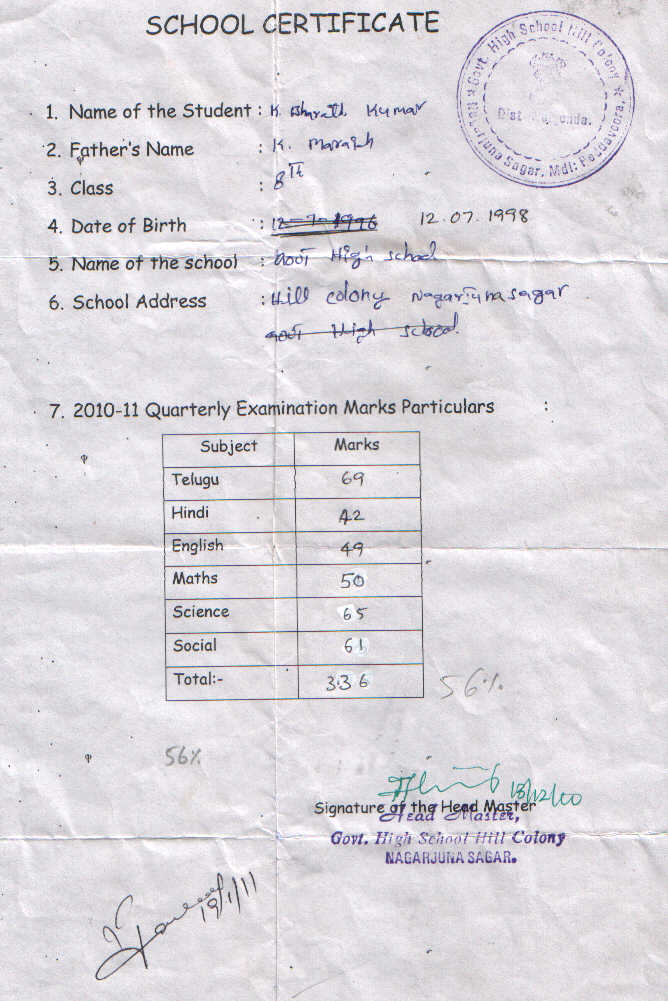 SCHOOL CERTIFICATE
Govt. High School Hill Colony
Nagarjuna Sagar. Mdl: Peddavoora.
Dist
1. Name of the Student : K Bharath Kumar
2. Father's Name : K.
3. Class : 8th
4. Date of Birth : 12-7-1996 12.07.1998
5. Name of the school : Govt High school
6. School Address : Hill colony Nagarjunasagar
Govt High school.
7. 2010-11 Quarterly Examination Marks Particulars :
Subject Marks
Telugu 69
Hindi 42
English 49
Maths 50
Science 65
Social 61
Total:- 336 56%
56%
Signature of the Head Master
Head Master,
Govt. High School Hill Colony
NAGARJUNA SAGAR.
19/1/11